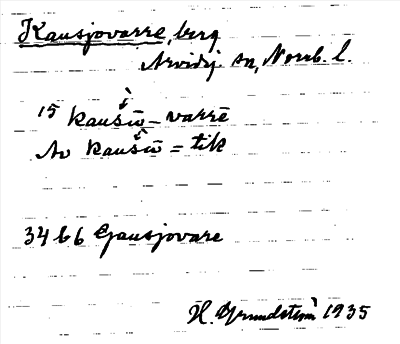 Kausjovarre, berg
Arvidsj. sn, Norrb. l.
15 kausiū - varrē
Av kausiū = tik
34 b 6 Gausjovare
H. Grundström 1935